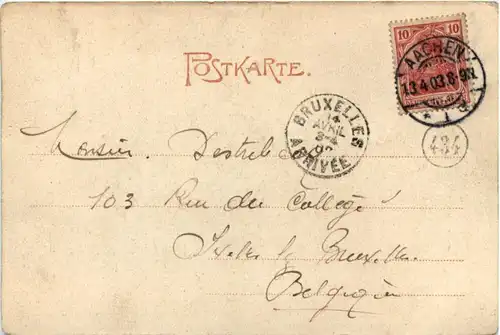 10 10
POSTKARTE.
AACHEN
13.4.03.8-9N.
* 1 g
BRUXELLES
14
AVRIL
3-4
ARRIVÉE
434
Monsieur Destrèb
103 Rue du Collège
Ixelles b/ Bruxelles
Belgique